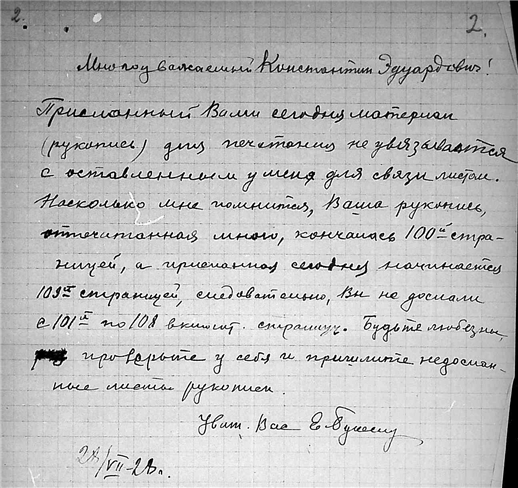 2.
2.
Многоуважаемый Константин Эдуардович!
Присланный Вами сегодня материал
(рукопись) для печатания не увязывается
с оставленным у меня для связи листом.
Насколько мне помнится, Ваша рукопись,
отпечатанная мною, кончалась 100й стра-
ницей, а присланная сегодня начинается
109й страницей, следовательно, Вы не дослали
с 101й по 108 включ. страницу. Будьте любезны,
проверьте у себя и пришлите недослан-
ные листы рукописи.
Уваж. Вас
VII-28г.